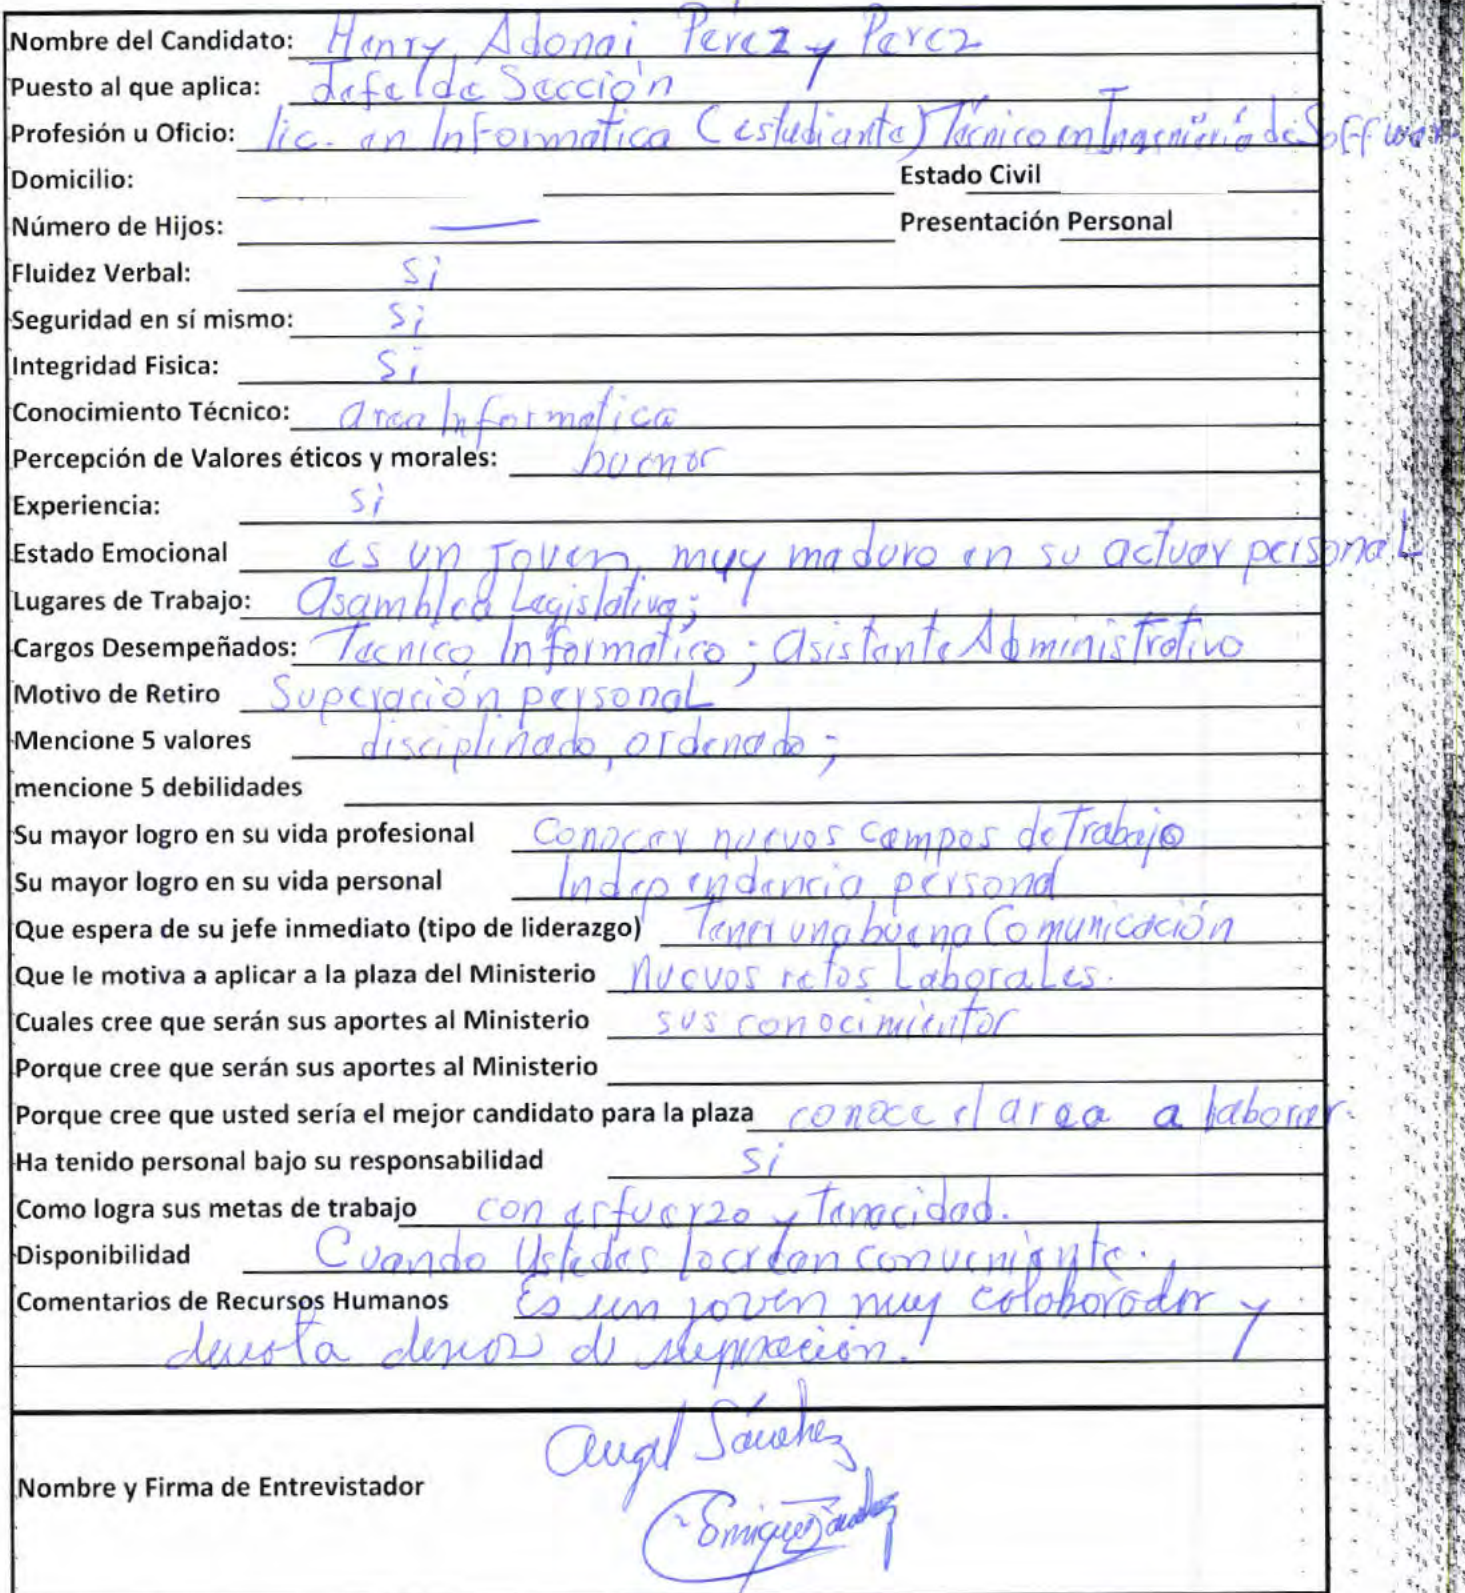 Nombre del Candidato: Henry Adonai Pérez y Perez
Puesto al que aplica: Jefe de Sección
Profesión u Oficio: lic. en Informatica (estudiante) Técnico en Ingeniería de Soffwar
Domicilio: Estado Civil
Número de Hijos: — Presentación Personal
Fluidez Verbal: Si
Seguridad en sí mismo: Si
Integridad Fisica: Si
Conocimiento Técnico: area Informatica
Percepción de Valores éticos y morales: buenos
Experiencia: si
Estado Emocional es un Joven, muy maduro en su actuar personal
Lugares de Trabajo: Asamblea Legislativa;
Cargos Desempeñados: Tecnico Informatico; Asistente Administrativo
Motivo de Retiro Superación personal
Mencione 5 valores disciplinado, ordenado;
mencione 5 debilidades
Su mayor logro en su vida profesional Conocer nuevos campos de Trabajo
Su mayor logro en su vida personal Independencia personal
Que espera de su jefe inmediato (tipo de liderazgo) Tener una buena Comunicación
Que le motiva a aplicar a la plaza del Ministerio Nuevos retos Laborales.
Cuales cree que serán sus aportes al Ministerio sus conocimientos
Porque cree que serán sus aportes al Ministerio
Porque cree que usted sería el mejor candidato para la plaza conoce el area a laborar.
Ha tenido personal bajo su responsabilidad Si
Como logra sus metas de trabajo con esfuerzo y Tenacidad.
Disponibilidad Cuando Ustedes lo crean conveniente.
Comentarios de Recursos Humanos Es un joven muy coloborador y
denota deseos de superación.
Angel Sánchez
Nombre y Firma de Entrevistador